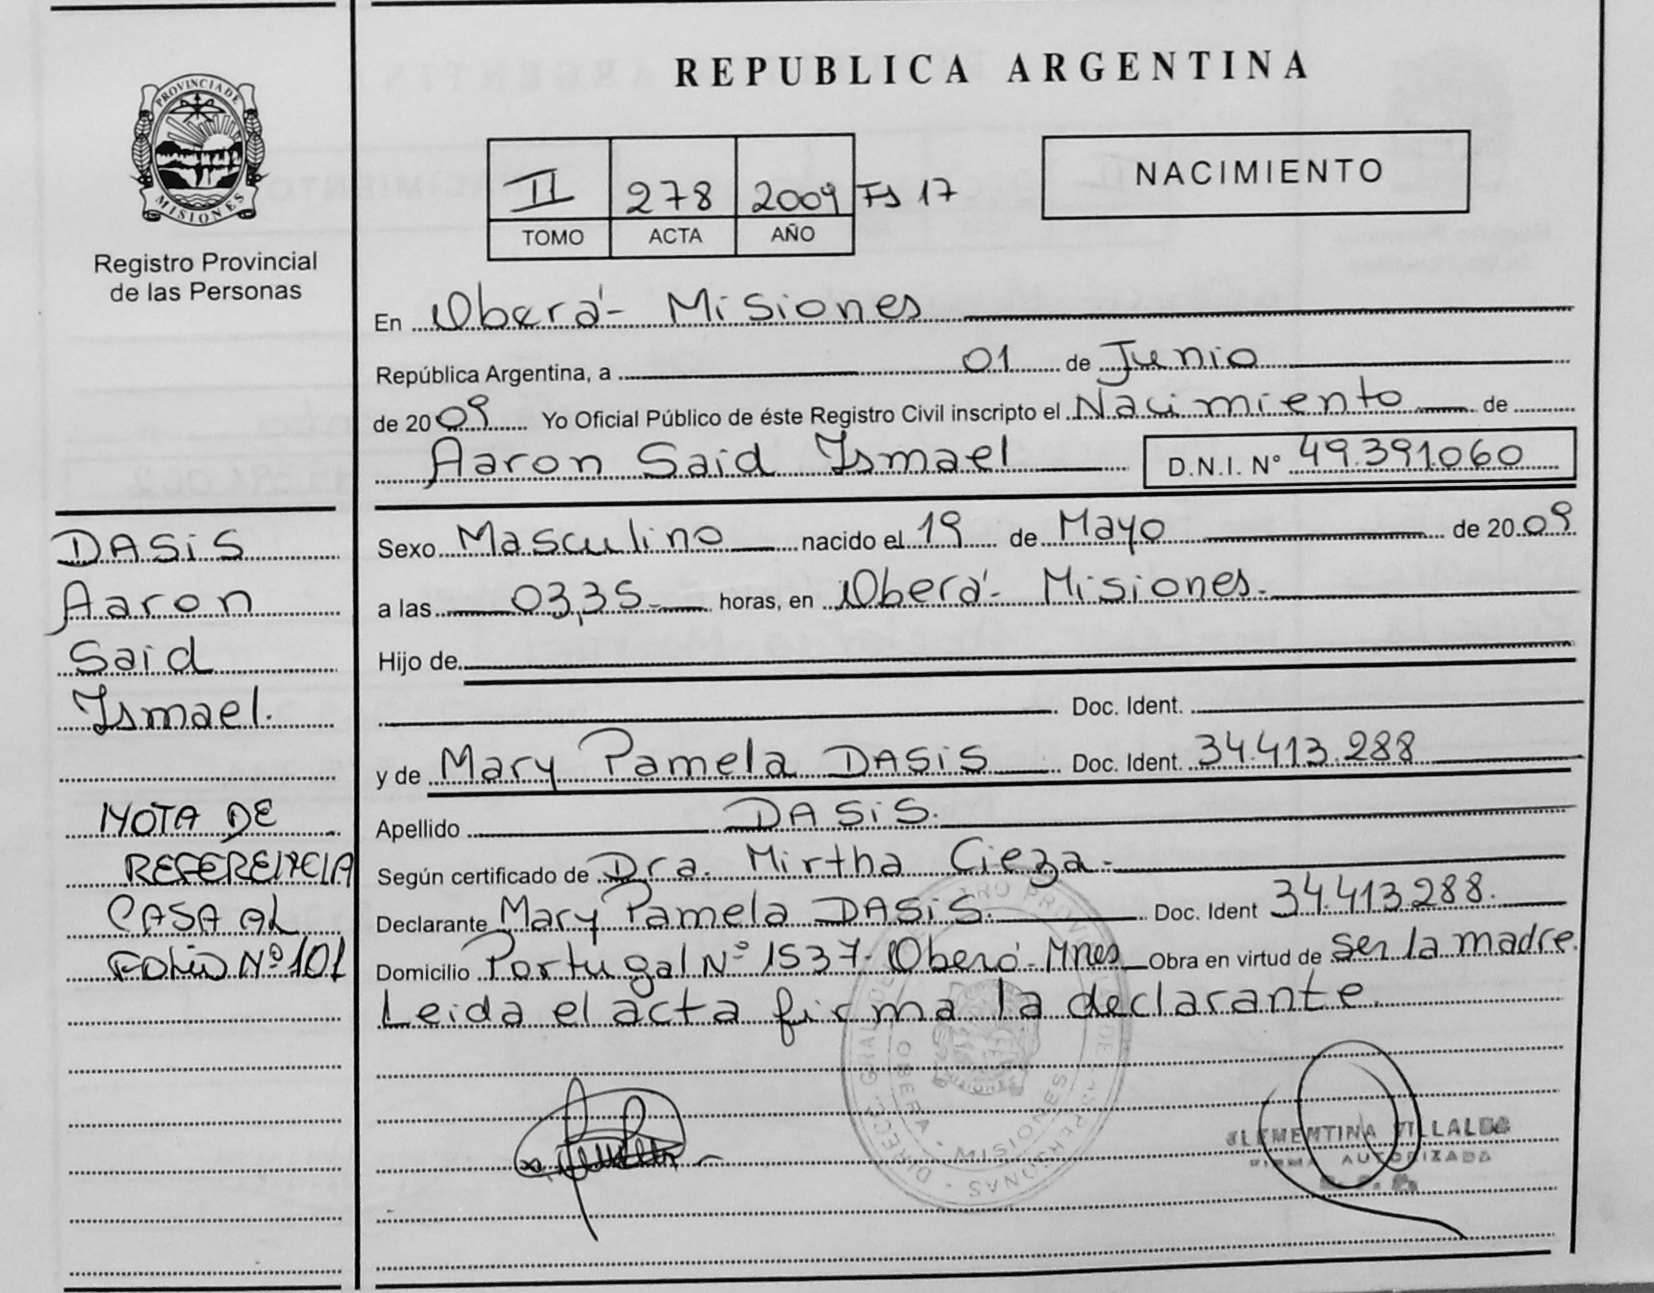 REPUBLICA ARGENTINA
PROVINCIA DE
MISIONES
Registro Provincial
de las Personas
II 278 2009 Fs 17
TOMO ACTA AÑO
NACIMIENTO
En Oberá - Misiones
República Argentina, a 01 de Junio
de 2009 Yo Oficial Público de éste Registro Civil inscripto el Nacimiento de
Aaron Said Ismael D.N.I. N° 49.391.060
Sexo Masculino nacido el 19 de Mayo de 2009
a las 03,35 horas, en Oberá - Misiones.
Hijo de
Doc. Ident.
y de Mary Pamela DASiS Doc. Ident. 34.413.288
Apellido DASiS.
Según certificado de Dra. Mirtha Cieza.
Declarante Mary Pamela DASiS. Doc. Ident 34.413.288.
Domicilio Portugal N° 1537 - Oberá - Mnes Obra en virtud de ser la madre.
Leida el acta firma la declarante.
DASiS
Aaron
Said
Ismael.
NOTA DE
REFERENCIA
CASA AL
FOLIO N° 101
OBERA - MISIONES
CLEMENTINA VILLALBA
FIRMA AUTORIZADA